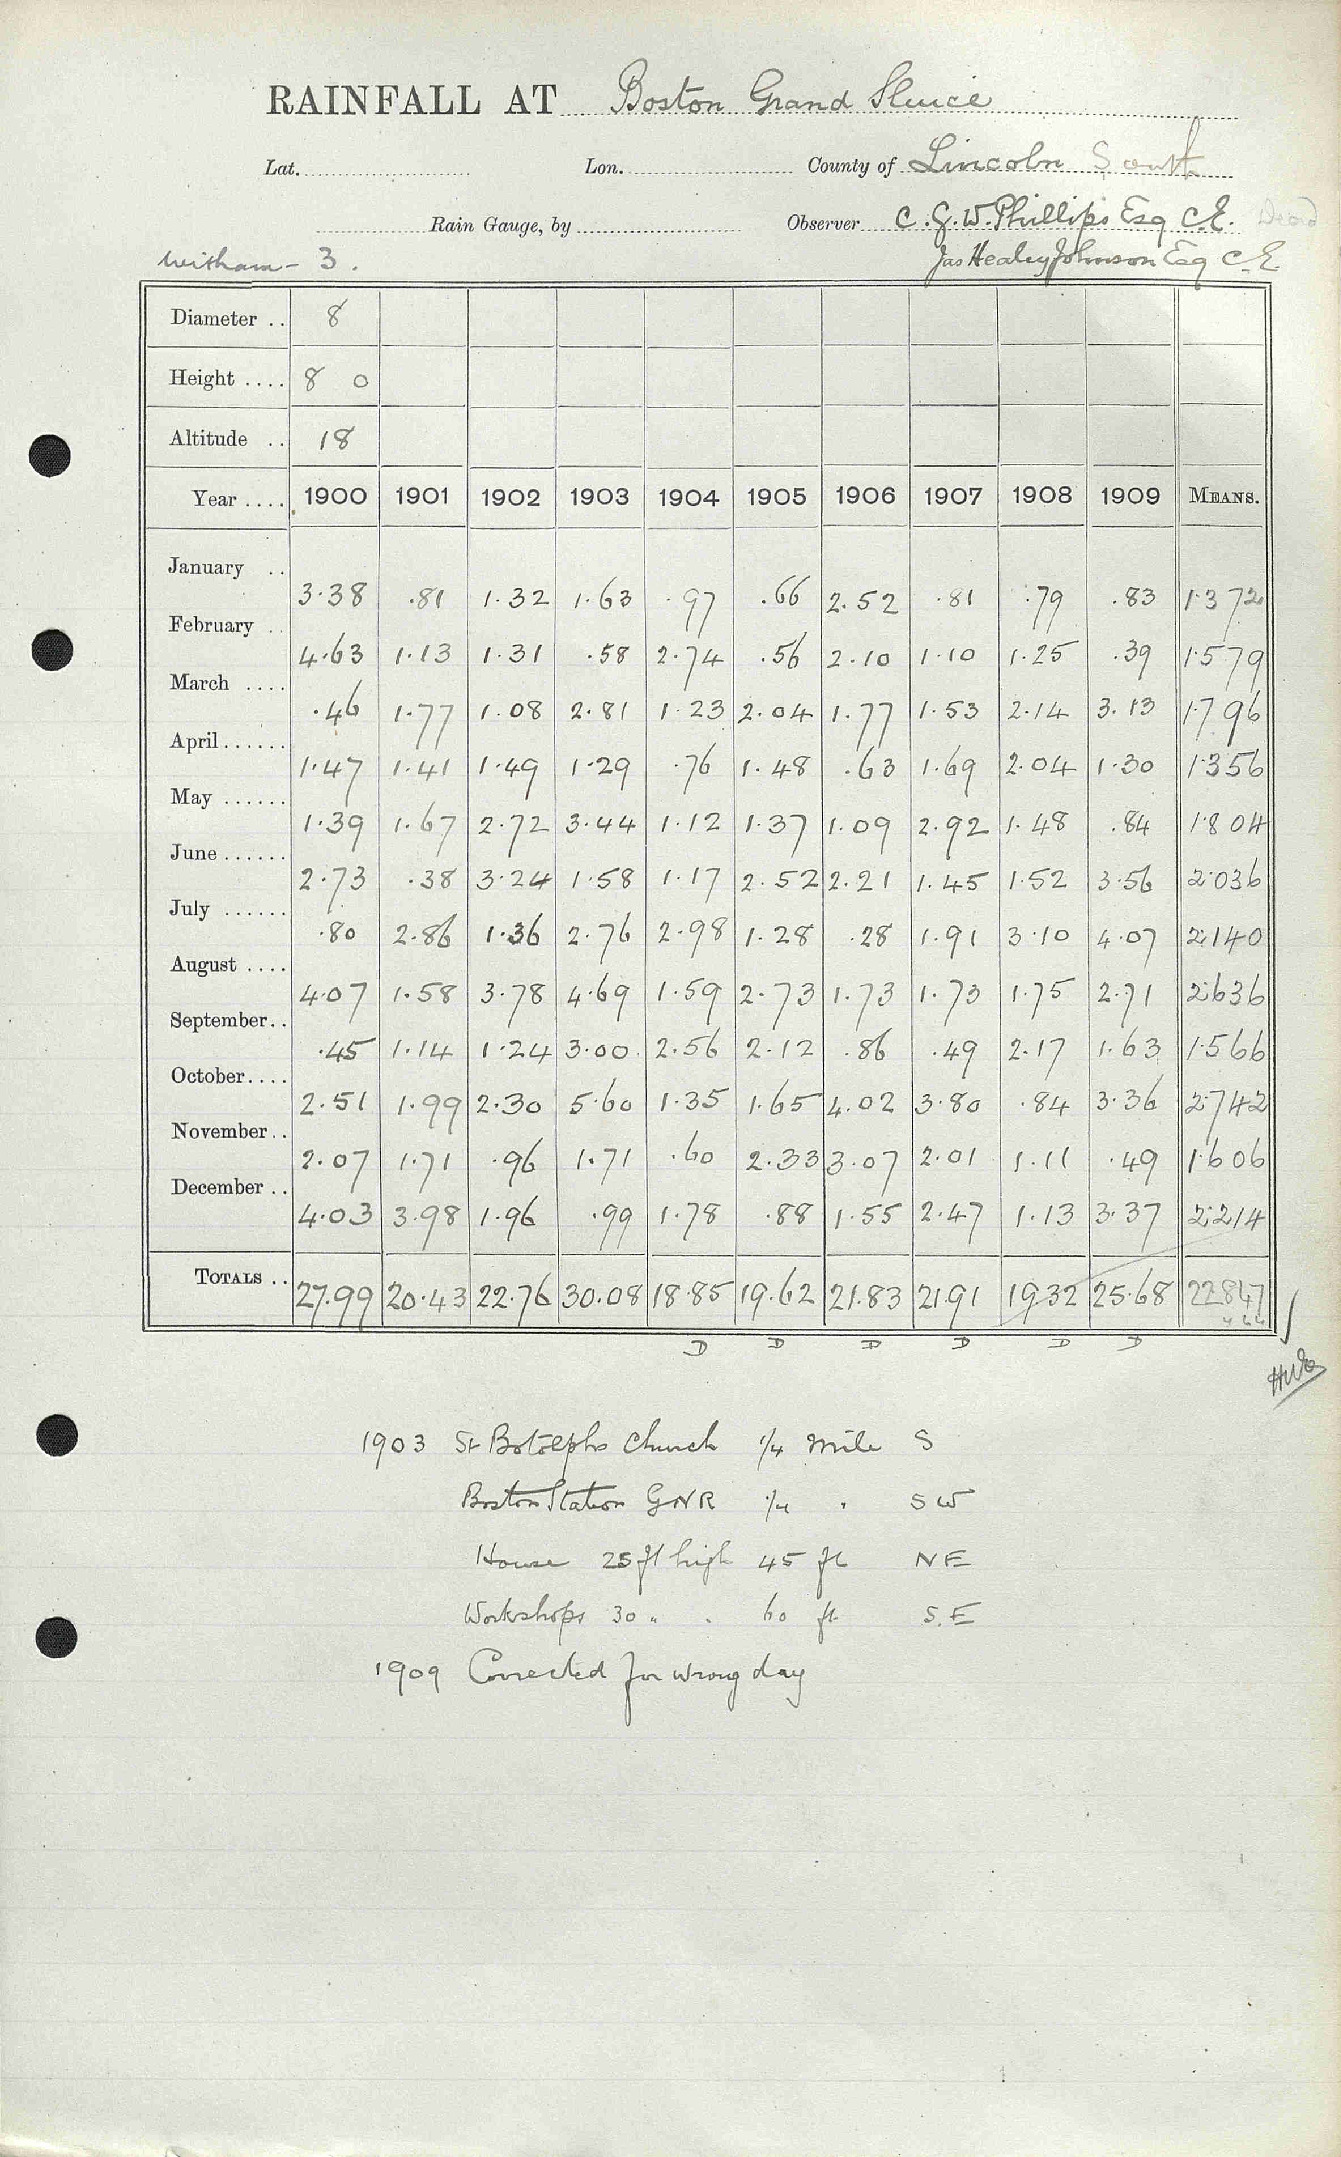 RAINFALL AT Boston Grand Sluice
Lat. Lon. County of Lincoln South
Rain Gauge, by Observer C. G. W. Phillips Esq C.E. Dead
Witham - 3. Jas Healey Johnson Esq C.E
Diameter .. 8
Height .... 8 0
Altitude .. 18
Year .... 1900 1901 1902 1903 1904 1905 1906 1907 1908 1909 MEANS.
January .. 3.38 .81 1.32 1.63 .97 .66 2.52 .81 .79 .83 1.372
February .. 4.63 1.13 1.31 .58 2.74 .56 2.10 1.10 1.25 .39 1.579
March .... .46 1.77 1.08 2.81 1.23 2.04 1.77 1.53 2.14 3.13 1.796
April...... 1.47 1.41 1.49 1.29 .76 1.48 .63 1.69 2.04 1.30 1.356
May ...... 1.39 1.67 2.72 3.44 1.12 1.37 1.09 2.92 1.48 .84 1.804
June ...... 2.73 .38 3.24 1.58 1.17 2.52 2.21 1.45 1.52 3.56 2.036
July ...... .80 2.86 1.36 2.76 2.98 1.28 .28 1.91 3.10 4.07 2.140
August .... 4.07 1.58 3.78 4.69 1.59 2.73 1.73 1.73 1.75 2.71 2.636
September.. .45 1.14 1.24 3.00 2.56 2.12 .86 .49 2.17 1.63 1.566
October.... 2.51 1.99 2.30 5.60 1.35 1.65 4.02 3.80 .84 3.36 2.742
November.. 2.07 1.71 .96 1.71 .60 2.33 3.07 2.01 1.11 .49 1.606
December .. 4.03 3.98 1.96 .99 1.78 .88 1.55 2.47 1.13 3.37 2.214
TOTALS .. 27.99 20.43 22.76 30.08 18.85 19.62 21.83 21.91 19.32 25.68 22.847
D D D D D D
1903 St Botolphs Church 1/4 mile S
Boston Station GNR 1/4 " SW
House 25 ft high 45 ft NE
Workshops 30 " " 60 ft S.E
1909 Corrected for wrong day